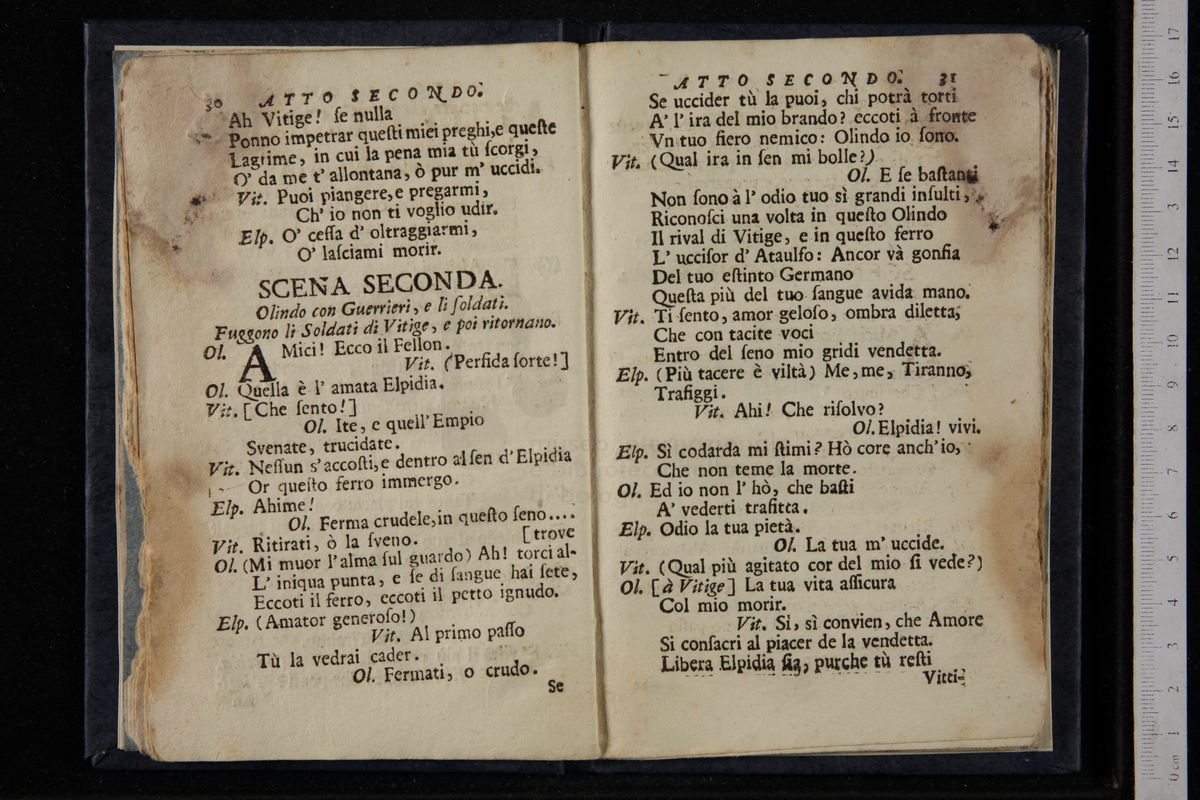 30 ATTO SECONDO.
Ah Vitige! ſe nulla
Ponno impetrar queſti miei preghi, e queſte
Lagrime, in cui la pena mia tù ſcorgi,
O' da me t' allontana, ò pur m' uccidi.
Vit. Puoi piangere, e pregarmi,
Ch' io non ti voglio udir.
Elp. O' ceſſa d' oltraggiarmi,
O' laſciami morir.
SCENA SECONDA.
Olindo con Guerrieri, e li ſoldati.
Fuggono li Soldati di Vitige, e poi ritornano.
Ol. AMici! Ecco il Fellon.
Vit. (Perfida ſorte!]
Ol. Quella è l' amata Elpidia.
Vit. [Che ſento!]
Ol. Ite, e quell' Empio
Svenate, trucidate.
Vit. Neſſun s' accoſti, e dentro al ſen d' Elpidia
Or queſto ferro immergo.
Elp. Ahime!
Ol. Ferma crudele, in queſto ſeno....
Vit. Ritirati, ò la ſveno. [trove
Ol. (Mi muor l'alma ſul guardo) Ah! torci al-
L' iniqua punta, e ſe di ſangue hai ſete,
Eccoti il ferro, eccoti il petto ignudo.
Elp. (Amator generoſo!)
Vit. Al primo paſſo
Tù la vedrai cader.
Ol. Fermati, o crudo.
Se
ATTO SECONDO. 31
Se uccider tù la puoi, chi potrà torti
A' l' ira del mio brando? eccoti à fronte
Vn tuo fiero nemico: Olindo io ſono.
Vit. (Qual ira in ſen mi bolle?)
Ol. E ſe baſtanti
Non ſono à l' odio tuo sì grandi inſulti,
Riconoſci una volta in queſto Olindo
Il rival di Vitige, e in queſto ferro
L' ucciſor d' Ataulfo: Ancor và gonfia
Del tuo eſtinto Germano
Queſta più del tuo ſangue avida mano.
Vit. Ti ſento, amor geloſo, ombra diletta,
Che con tacite voci
Entro del ſeno mio gridi vendetta.
Elp. (Più tacere è viltà) Me, me, Tiranno,
Trafiggi.
Vit. Ahi! Che riſolvo?
Ol. Elpidia! vivi.
Elp. Sì codarda mi ſtimi? Hò core anch' io,
Che non teme la morte.
Ol. Ed io non l' hò, che baſti
A' vederti trafitta.
Elp. Odio la tua pietà.
Ol. La tua m' uccide.
Vit. (Qual più agitato cor del mio ſi vede?)
Ol. [à Vitige] La tua vita aſſicura
Col mio morir.
Vit. Sì, sì convien, che Amore
Si conſacri al piacer de la vendetta.
Libera Elpidia ſia, purche tù reſti
Vitti-